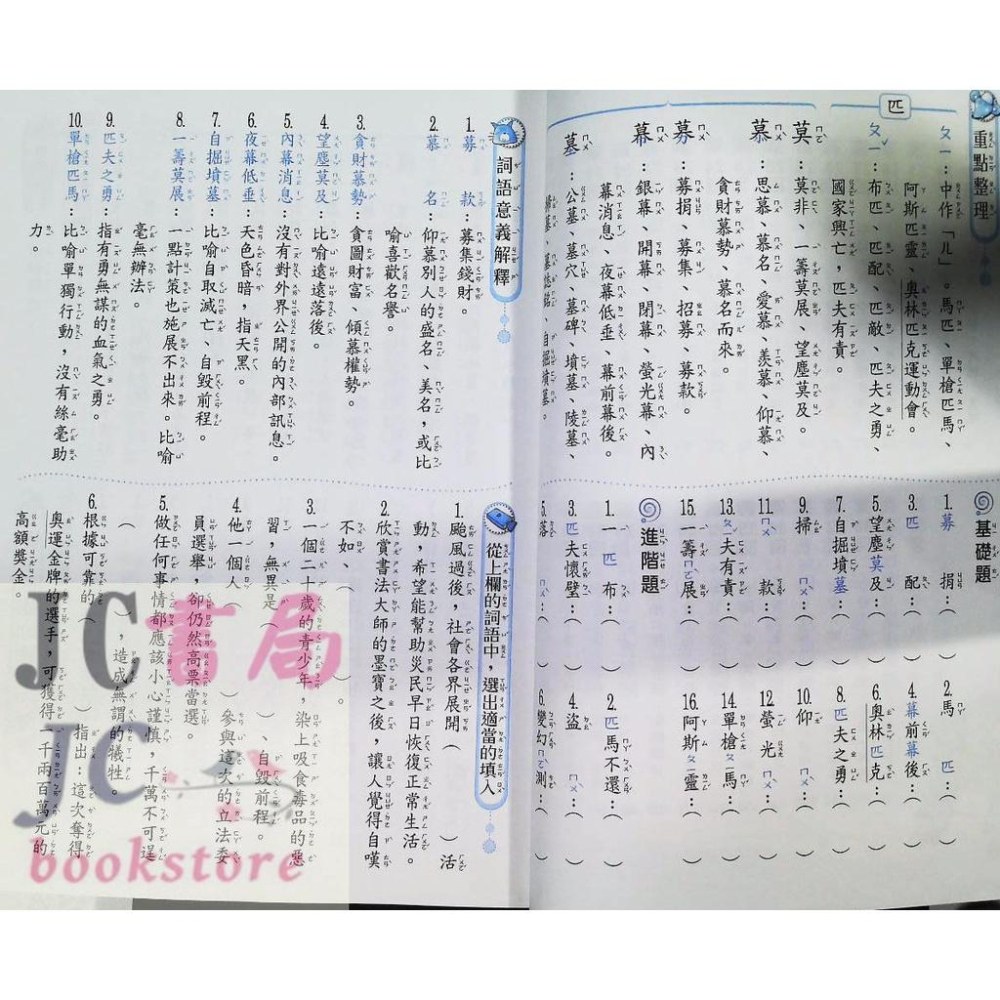 重點整理
匹
ㄆㄧ：中作「ㄦ」。馬匹、單槍匹馬、
阿斯匹靈、奧林匹克運動會。
ㄆㄧˇ：布匹、匹配、匹敵、匹夫之勇、
國家興亡，匹夫有責。
莫：莫非、一籌莫展、望塵莫及。
慕：思慕、慕名、愛慕、羨慕、仰慕、
貪財慕勢、慕名而來。
募：募捐、募集、招募、募款。
幕：銀幕、開幕、閉幕、螢光幕、內
幕消息、夜幕低垂、幕前幕後。
墓：公墓、墓穴、墓碑、墳墓、陵墓、
掃墓、墓誌銘、自掘墳墓。
基礎題
1. 募捐：（　）
2. 馬匹：（　）
3. 匹配：（　）
4. 幕前幕後：（　）
5. 望塵莫及：（　）
6. 奧林匹克：（　）
7. 自掘墳墓：（　）
8. 匹夫之勇：（　）
9. 掃ㄇㄨˋ：（　）
10. 仰ㄇㄨˋ：（　）
11. ㄇㄨˋ款：（　）
12. 螢光ㄇㄨˋ：（　）
13. ㄆㄧˇ夫有責：（　）
14. 單槍ㄆㄧ馬：（　）
15. 一籌ㄇㄛˋ展：（　）
16. 阿斯ㄆㄧ靈：（　）
進階題
1. 一匹布：（　）
2. 匹馬不還：（　）
3. 匹夫懷璧：（　）
4. 盜ㄇㄨˋ：（　）
5. 落ㄇㄨˋ：（　）
6. 變幻ㄇㄛˋ測：（　）
詞語意義解釋
1. 募款：募集錢財。
2. 慕名：仰慕別人的盛名、美名，或比
喻喜歡名譽。
3. 貪財慕勢：貪圖財富、傾慕權勢。
4. 望塵莫及：比喻遠遠落後。
5. 內幕消息：沒有對外界公開的內部訊息。
6. 夜幕低垂：天色昏暗，指天黑。
7. 自掘墳墓：比喻自取滅亡、自毀前程。
8. 一籌莫展：一點計策也施展不出來。比喻
毫無辦法。
9. 匹夫之勇：指有勇無謀的血氣之勇。
10. 單槍匹馬：比喻單獨行動，沒有絲毫助
力。
從上欄的詞語中，選出適當的填入
1. 颱風過後，社會各界展開（　）活
動，希望能幫助災民早日恢復正常生活。
2. 欣賞書法大師的墨寶之後，讓人覺得自嘆
不如、（　）。
3. 一個二十歲的青少年，染上吸食毒品的惡
習，無異是（　）、自毀前程。
4. 他一個人（　）參與這次的立法委
員選舉，卻仍然高票當選。
5. 做任何事情都應該小心謹慎，千萬不可逞
（　），造成無謂的犧牲。
6. 根據可靠的（　）指出：這次奪得
奧運金牌的選手，可獲得一千兩百萬元的
高額獎金。
JC書局
JC
bookstore